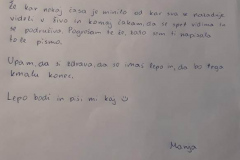 Že kar nekaj časa je minilo od kar sva se nazadnje
videli v živo in komaj čakam, da se spet vidiva in
se podruživa. Pogrešam te že, zato sem ti napisala
to le pismo.
Upam, da si zdrava, da se imaš lepo in, da bo tega
kmalu konec.
Lepo bodi in piši mi kaj ☺
Manja